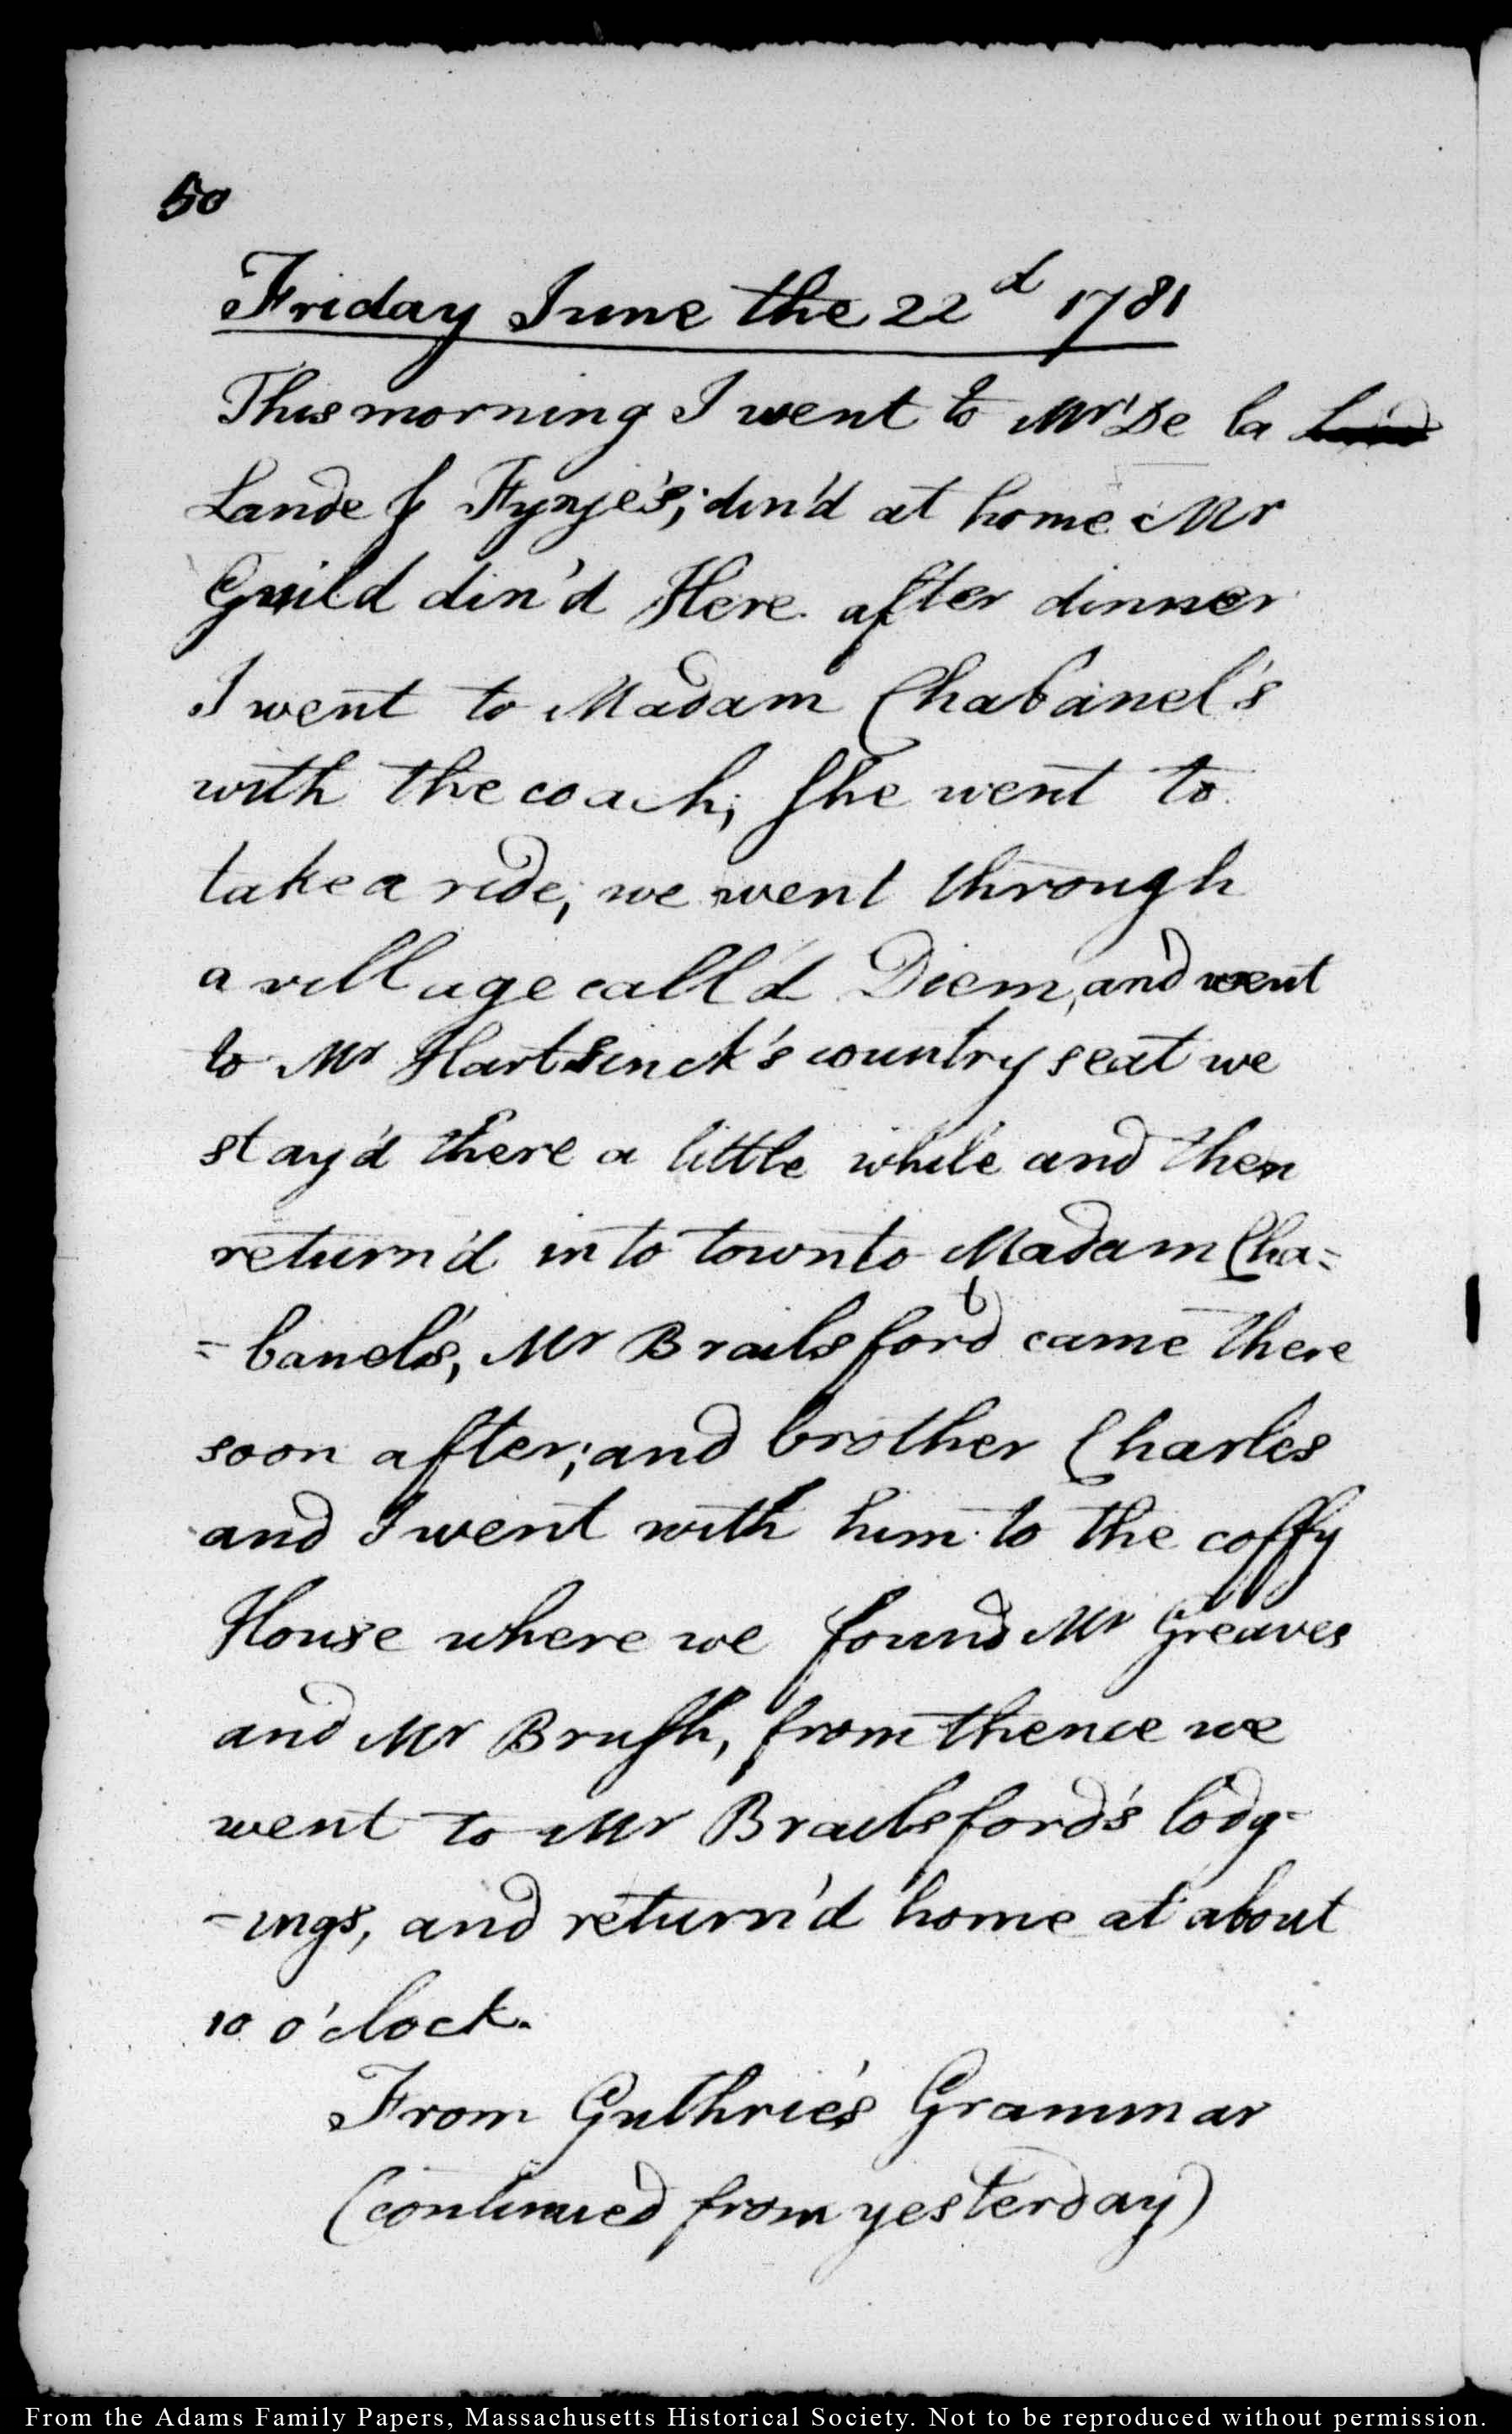 50
Friday June the 22d 1781
This morning I went to Mr De la
Lande & Fynje's; din'd at home Mr
Guild din'd Here after dinner
I went to Madam Chabanel's
with the coach, She went to
take a ride, we went through
a village call'd Diem, and went
to Mr Hartsinck's country seat we
stay'd there a little while and then
return'd into town to Madam Cha=
=banel's, Mr Brailsford came there
soon after; and brother Charles
and I went with him to the coffy
House where we found Mr Greaves
and Mr Brush, from thence we
went to Mr Brailsford's lodg-
-ings, and return'd home at about
10 o'clock.
From Guthrie's Grammar
(continued from yesterday)
From the Adams Family Papers, Massachusetts Historical Society. Not to be reproduced without permission.